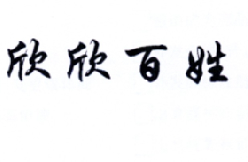 欣欣百姓